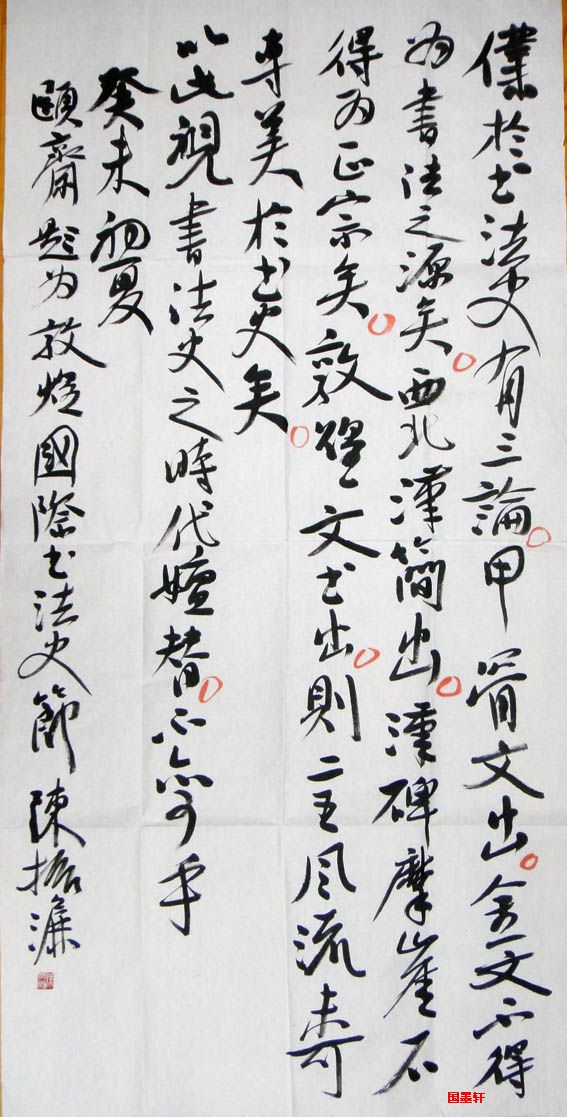 僕於书法史有三論甲骨文出金文不得
为書法之源矣西北漢簡出漢碑摩崖不
得为正宗矣敦煌文书出則二王风流未可
專美於书史矣
以此視書法史之時代嬗替不亦可乎
癸未初夏
頤齋題为敦煌國際书法史節陳振濂
国墨轩